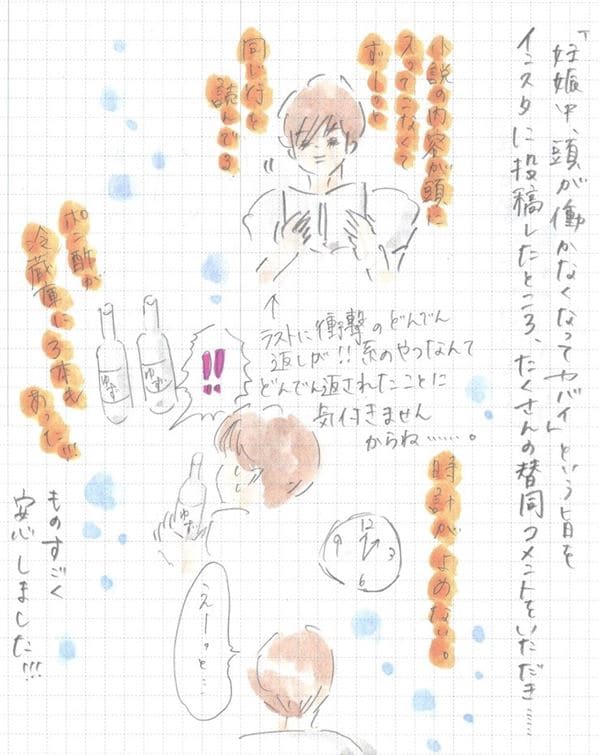 「妊娠中、頭が働かなくなってヤバイ」という旨を
インスタに投稿したところ、たくさんの賛同コメントをいただき……
小説の内容が頭に
入ってこなくて
ずーっと
同じ行を
読んでる
↑
ラストに衝撃のどんでん
返しが!!系のやつなんて
どんでん返されたことに
気付きません
からね……。
ポン酢が
冷蔵庫に3本も
あった!!!
ゆず
ゆず
!!
ゆず
時計がよめない。
12
3
6
9
えーっと…
ものすごく
安心しました!!!